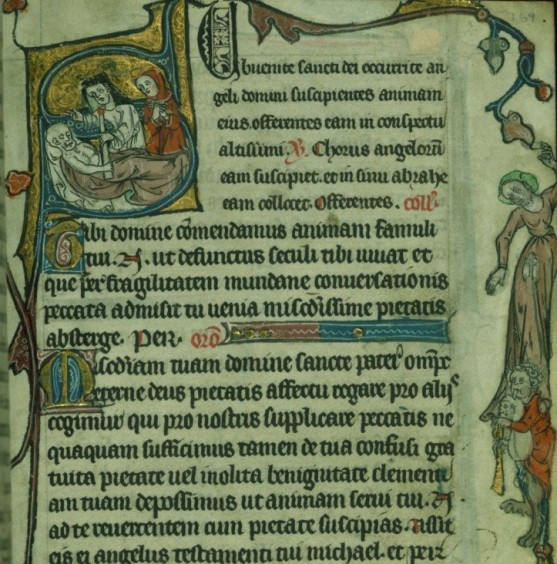 Subuenite sancti dei occurrite an
geli domini suscipientes animam
eius. offerentes eam in conspectu
altissimi. V. Chorus angeloru
eam suscipiet. et in sinu abrahe
eam collocet. Offerentes. coll'.
Tibi domine comendamus animam famuli
tui. N. ut defunctus seculi tibi uiuat et
que per fragilitatem mundane conuersationis
peccata admisit tu uenia misc'dissime pietatis
absterge. Per. oro
Misc'diam tuam domine sancte pater omps
eterne deus pietatis affectu rogare pro alijs
cogimur qui pro nostris supplicare peccatis ne
quaquam sufficimus tamen de tua confisi gra
tuita pietate uel inolita benignitate clementi
am tuam deposcimus ut animam serui tui. N.
ad te reuertentem cum pietate suscipias. Assit
eis ei angelus testamenti tui michael. et per